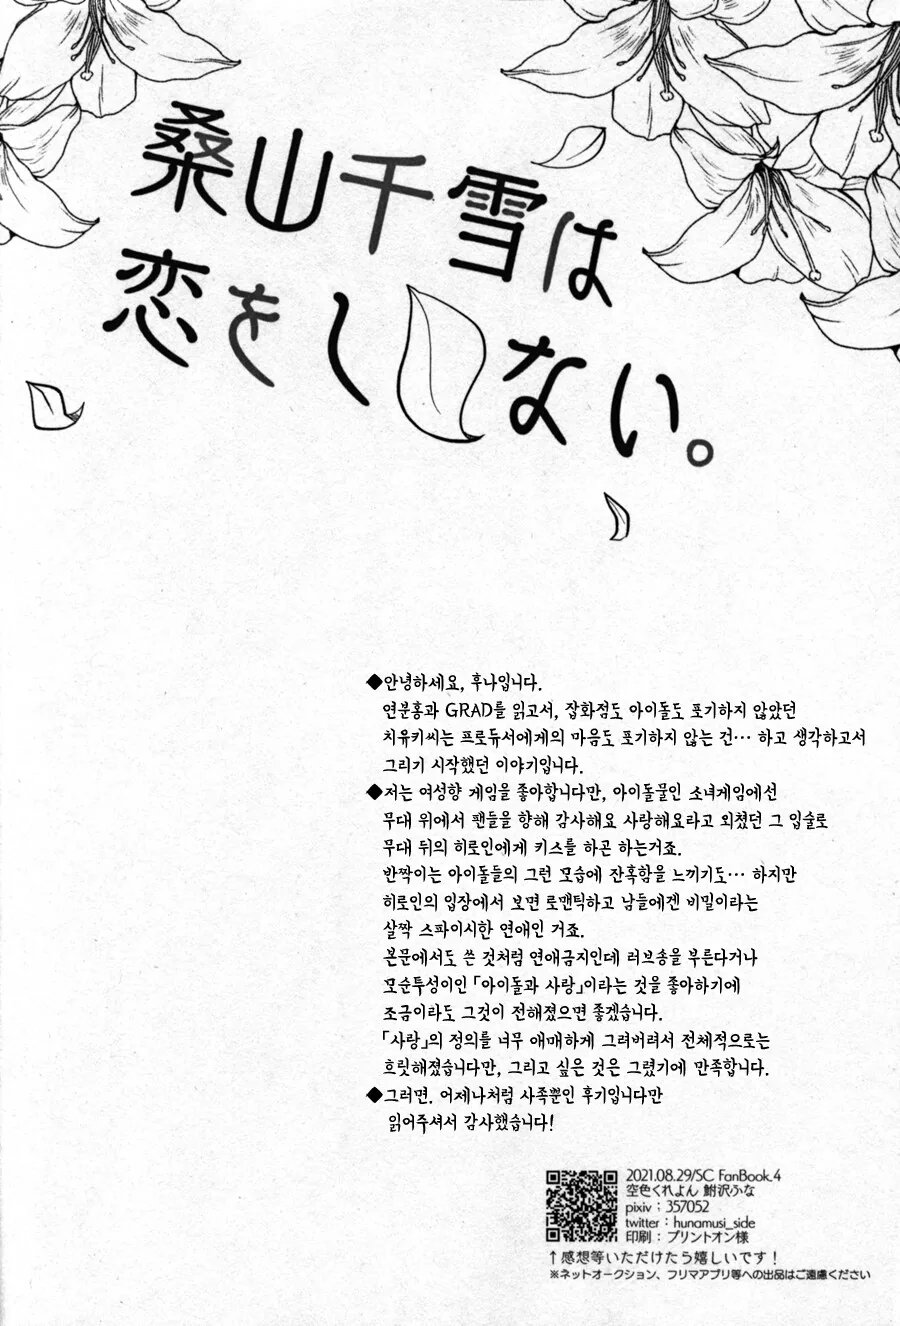 桑山千雪は
恋をしない。
◆안녕하세요, 후나입니다.
연분홍과 GRAD를 읽고서, 잡화점도 아이돌도 포기하지 않았던
치유키씨는 프로듀서에게의 마음도 포기하지 않는 건… 하고 생각하고서
그리기 시작했던 이야기입니다.
◆저는 여성향 게임을 좋아합니다만, 아이돌물인 소녀게임에선
무대 위에서 팬들을 향해 감사해요 사랑해요라고 외쳤던 그 입술로
무대 뒤의 히로인에게 키스를 하곤 하는거죠.
반짝이는 아이돌들의 그런 모습에 잔혹함을 느끼기도… 하지만
히로인의 입장에서 보면 로맨틱하고 남들에겐 비밀이라는
살짝 스파이시한 연애인 거죠.
본문에서도 쓴 것처럼 연애금지인데 러브송을 부른다거나
모순투성이인 「아이돌과 사랑」이라는 것을 좋아하기에
조금이라도 그것이 전해졌으면 좋겠습니다.
「사랑」의 정의를 너무 애매하게 그려버려서 전체적으로는
흐릿해졌습니다만, 그리고 싶은 것은 그렸기에 만족합니다.
◆그러면. 어제나처럼 사족뿐인 후기입니다만
읽어주셔서 감사했습니다!
2021.08.29/SC FanBook.4
空色くれよん 鮒沢ふな
pixiv : 357052
twitter : hunamusi_side
印刷 : プリントオン様
↑感想等いただけたら嬉しいです！
※ネットオークション、フリマアプリ等への出品はご遠慮ください